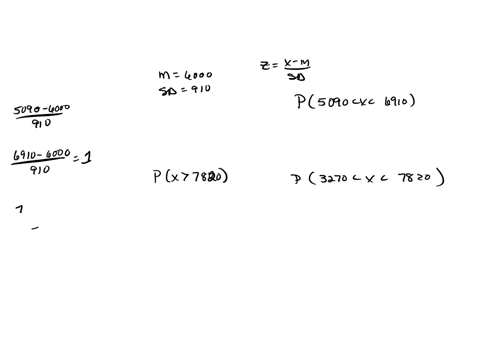 m = 6000
SD = 910
z = x-m / SD
P(5090 < x < 6910)
5090-6000 / 910
6910-6000 / 910 = 1
P(x > 7820)
P(3270 < x < 7820)